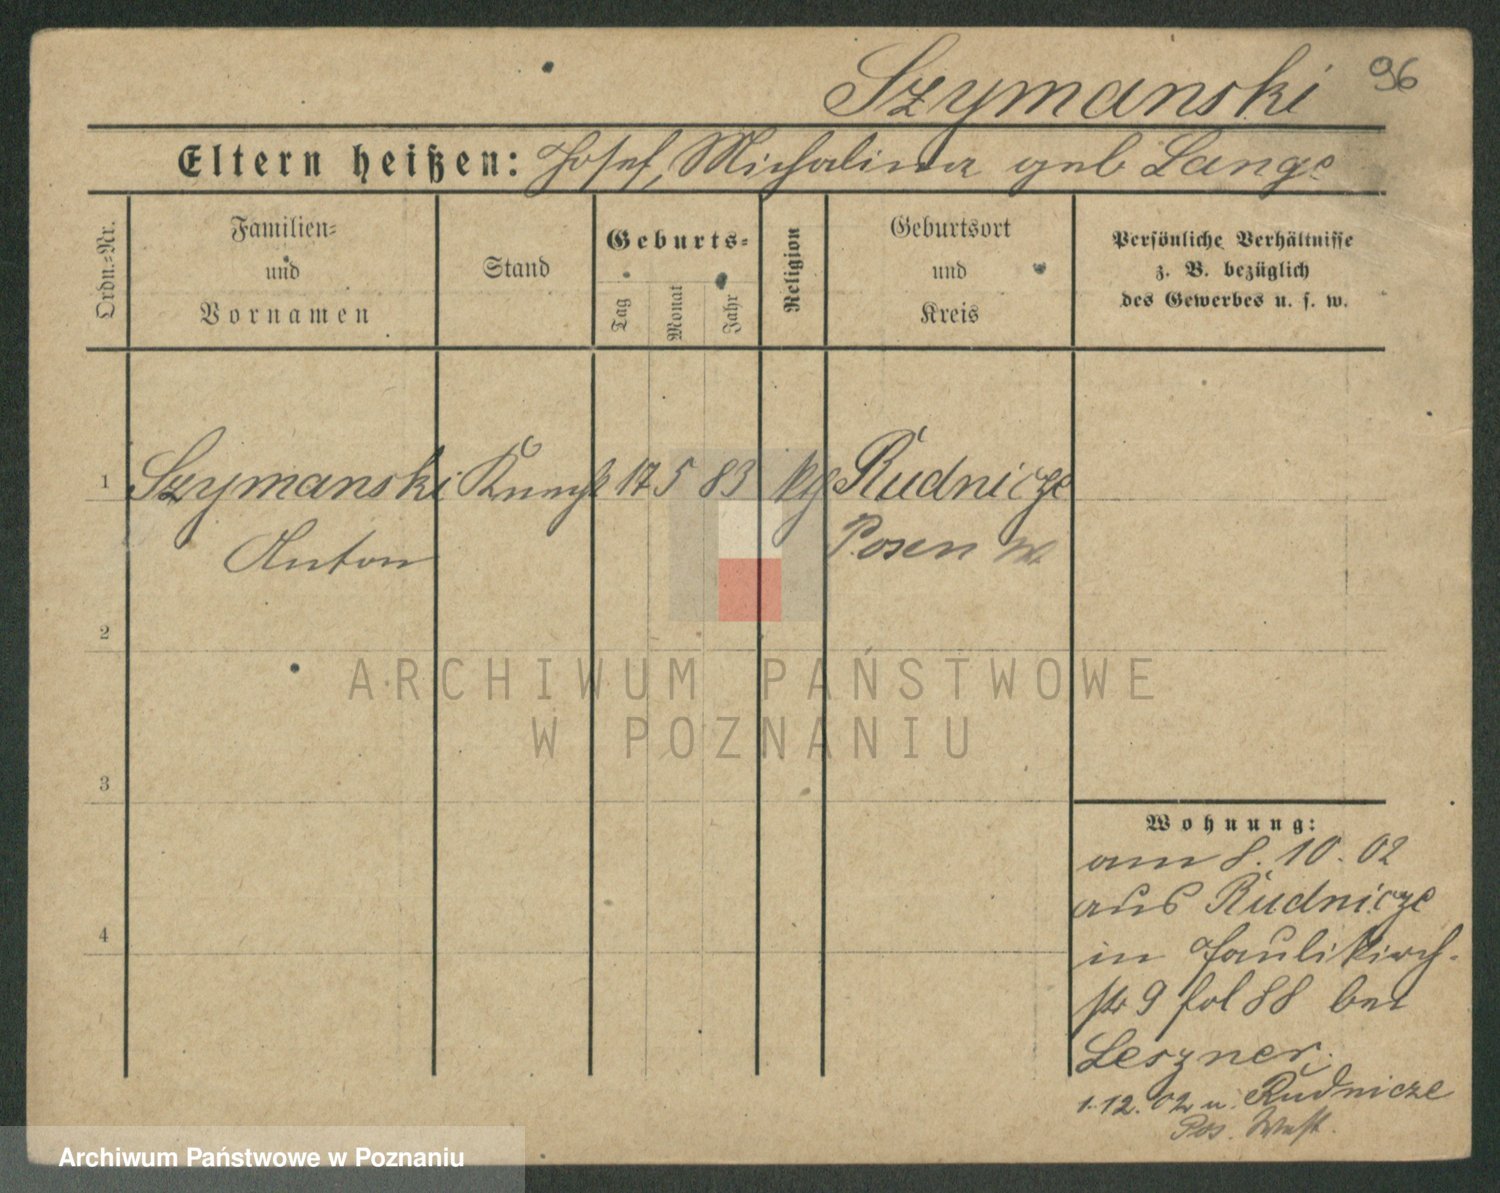 Szymanski 96
Eltern heißen: Josef, Michalina geb Lange
Ordn.-Nr.
Familien-
und
Vornamen
Stand
Geburts-
Tag
Monat
Jahr
Religion
Geburtsort
und
Kreis
Persönliche Verhältnisse
z. B. bezüglich
des Gewerbes u. s. w.
1 Szymanski 17 5 83 Rudnicze
Anton Posen W.
2
ARCHIWUM PAŃSTWOWE
W POZNANIU
3
Wohnung:
am 8. 10. 02
aus Rudnicze
4
in Paulikirch-
str 9 fol 88 bei
Leszner.
1.12.02 n. Rudnicze
Pos. West.
Archiwum Państwowe w Poznaniu